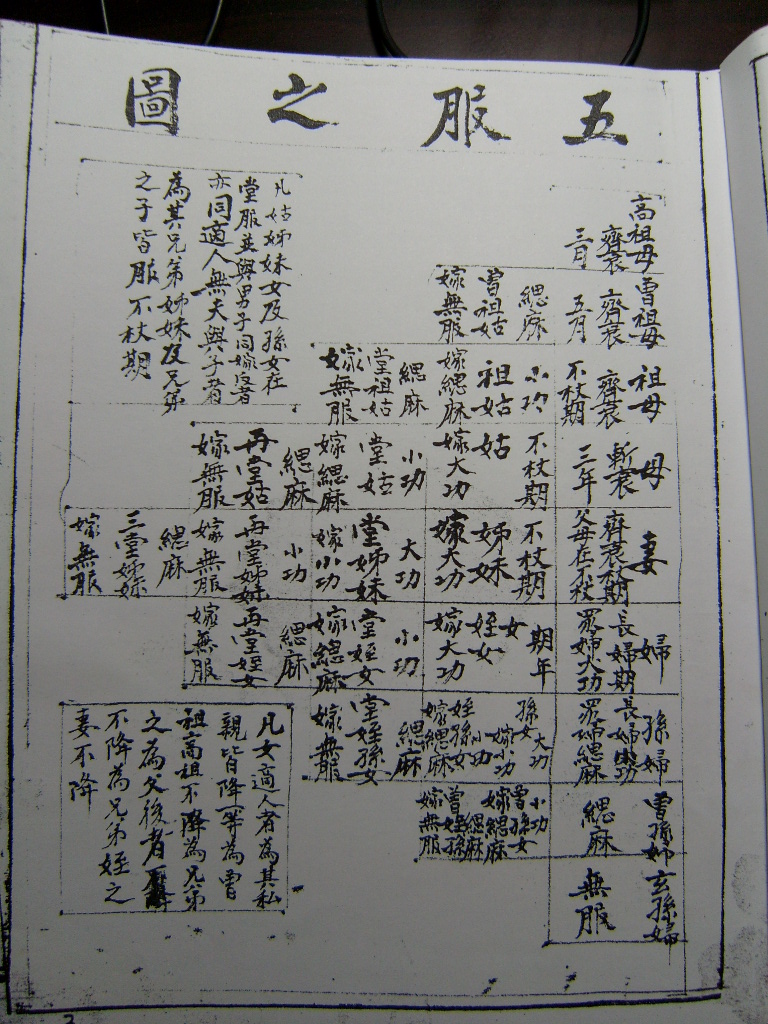 五服之圖
高祖母
齊衰
三月
曾祖母
齊衰
五月
祖母
齊衰
不杖期
母
斬衰
三年
妻
齊衰杖期
父母在不杖
婦
長婦期
眾婦大功
孫婦
長婦小功
眾婦緦麻
曾孫婦
緦麻
玄孫婦
無服
緦麻
曾祖姑
嫁無服
小功
祖姑
嫁緦麻
不杖期
姑
嫁大功
不杖期
姊妹
嫁大功
期年
女
姪女
嫁大功
孫女
大功
嫁小功
姪孫女
小功
嫁緦麻
曾孫女
小功
嫁緦麻
曾姪孫
緦麻
嫁無服
緦麻
堂祖姑
嫁無服
小功
堂姑
嫁緦麻
大功
堂姊妹
嫁小功
小功
堂姪女
嫁緦麻
緦麻
堂姪孫女
嫁無服
緦麻
再堂姑
嫁無服
小功
再堂姊妹
嫁無服
緦麻
再堂姪女
嫁無服
緦麻
三堂姊妹
嫁無服
凡姑姊妹女及孫女在
堂服並與男子同嫁反者
亦同適人無夫與子者
為其兄弟姊妹及兄弟
之子皆服不杖期
凡女適人者為其私
親皆降一等為曾
祖高祖不降為兄弟
之為父後者
不降為兄弟姪之
妻不降